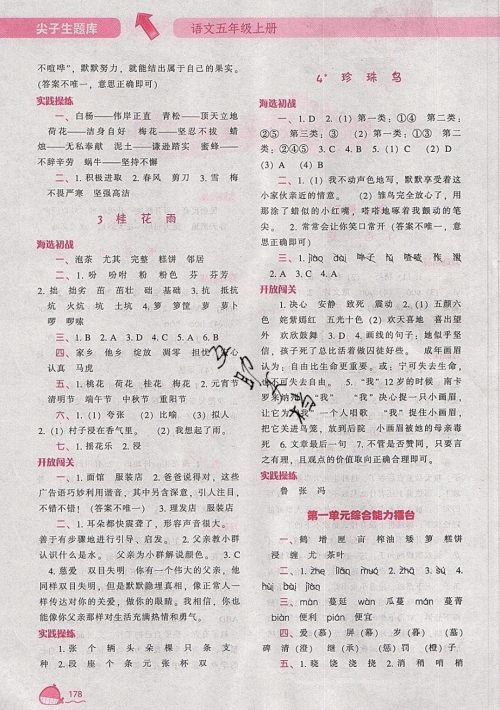 尖子生题库
语文五年级上册
不喧哗”，默默努力，就能结出属于自己的果实。
(答案不唯一，意思正确即可)
实践操练
一、白杨——伟岸正直 青松——顶天立地
荷花——洁身自好 梅花——坚忍不拔 蜡
烛——无私奉献 泥土——谦逊踏实 蜜蜂——
不辞辛劳 蜗牛——坚持不懈
二、1. 积极进取 2. 春风 剪刀 3. 雪 梅
不畏严寒 坚强高洁
3 桂花雨
海选初战
一、泡茶 尤其 完整 糕饼 邻居
二、1. 吩 吩咐 粉 粉色 芬 芬芳
2. 拙 拙劣 茁 茁壮 础 基础 3. 抗 抵抗
炕 火炕 坑 土坑 4. 箩 箩筐 萝 萝卜
啰 啰嗦
三、1. B 2. A 3. D 4. B 5. C
四、家乡 他乡 绽放 凋零 担忧
认真 马虎
五、1. 桃花 荷花 桂花 梅花 2. 元宵节
清明节 端午节 中秋节 重阳节
六、1. (1) 夸张 (2) 比喻 (3) 拟人
2. (1) 村子浸在香气里。 (2) 我想起了雨。
七、1. 摇花乐 2. 浸
开放闯关
一、1. 面馆 服装店 2. 爸爸说得对，这些
广告语巧妙利用谐音，其中另含深意，引人注目，
不错不错！ (答案不唯一) 3. 理发店 服装店
二、1. 耳朵都快震聋了，形容声音很大。
善于有步骤地进行引导、启发。 2. 父亲教小群
认识什么是水。 父亲为小群解说颜色。 3. C
4. 慈爱 双目失明 你有一个伟大的父亲，他
同样双目失明，但是默默隐埋真相，像正常人一
样传达对你的关爱，做你的眼睛。我相信，我也
能像你父亲那样对生活充满热情和勇气。
实践操练
1. 张 个 辆 头 朵 棵 只 条 支
种 2. 段 座 个 条 元 张 杯 双
178
4* 珍珠鸟
海选初战
一、1. D 2. (1) 第一类：①④ 第二类：
②⑤ 第三类：③ (2) 第一类：①③ 第二
类：②④⑤ 3. C 4. B 5. (1) C (2) D
(3) A (4) B
二、1. (1) 我不动声色地写，默默享受着这
小家伙亲近的情意。 (2) 雏鸟完全放心了，用
那涂了蜡似的小红嘴，嗒嗒地啄着我颤动的笔
尖。 2. 常常会让你笑口常开 (答案不唯一，意
思正确即可)
2. A 3. C 4. A
开放闯关
1. 决心 安静 致死 震动 2. (1) 五颜六
色 姹紫嫣红 五光十色 (2) 欢天喜地 喜出望
外 欢欣鼓舞 3. D 4. 画线的句子：她似乎坚
信，孩子死了总比活着做囚徒好些。 成年画眉
认为：自由比生命更重要。或：宁可失去生命，
也不可失去自由。 5. “我”12岁的时候 南卡
“我” “我”决心捉一只小画眉，
一个人唱歌 “我”捉住小画眉，
把它关进鸟笼，放到后院 小画眉被她的母亲毒
死 6. 文章最后一句 7. 不管是否赞同，只要言
之有理，且观点的价值取向正确合理即可。
实践操练
鲁 张 冯
第一单元综合能力擂台
一、鹤 增 匣 亩 榨油 矮 萝 糕饼
浸 缠 尤 茶叶
三、màn 蔓延 wàn 瓜蔓 mán 蔓菁
biàn 方便 便利 pián 便宜
四、爱 (慕) 屏 (幕) 岁 (暮) (墓)
碑 清 (澄) 继 (承) (惩) 罚 (橙) 子
五、1. 晓 浇 浇 挠 2. 消 稍 哨 梢